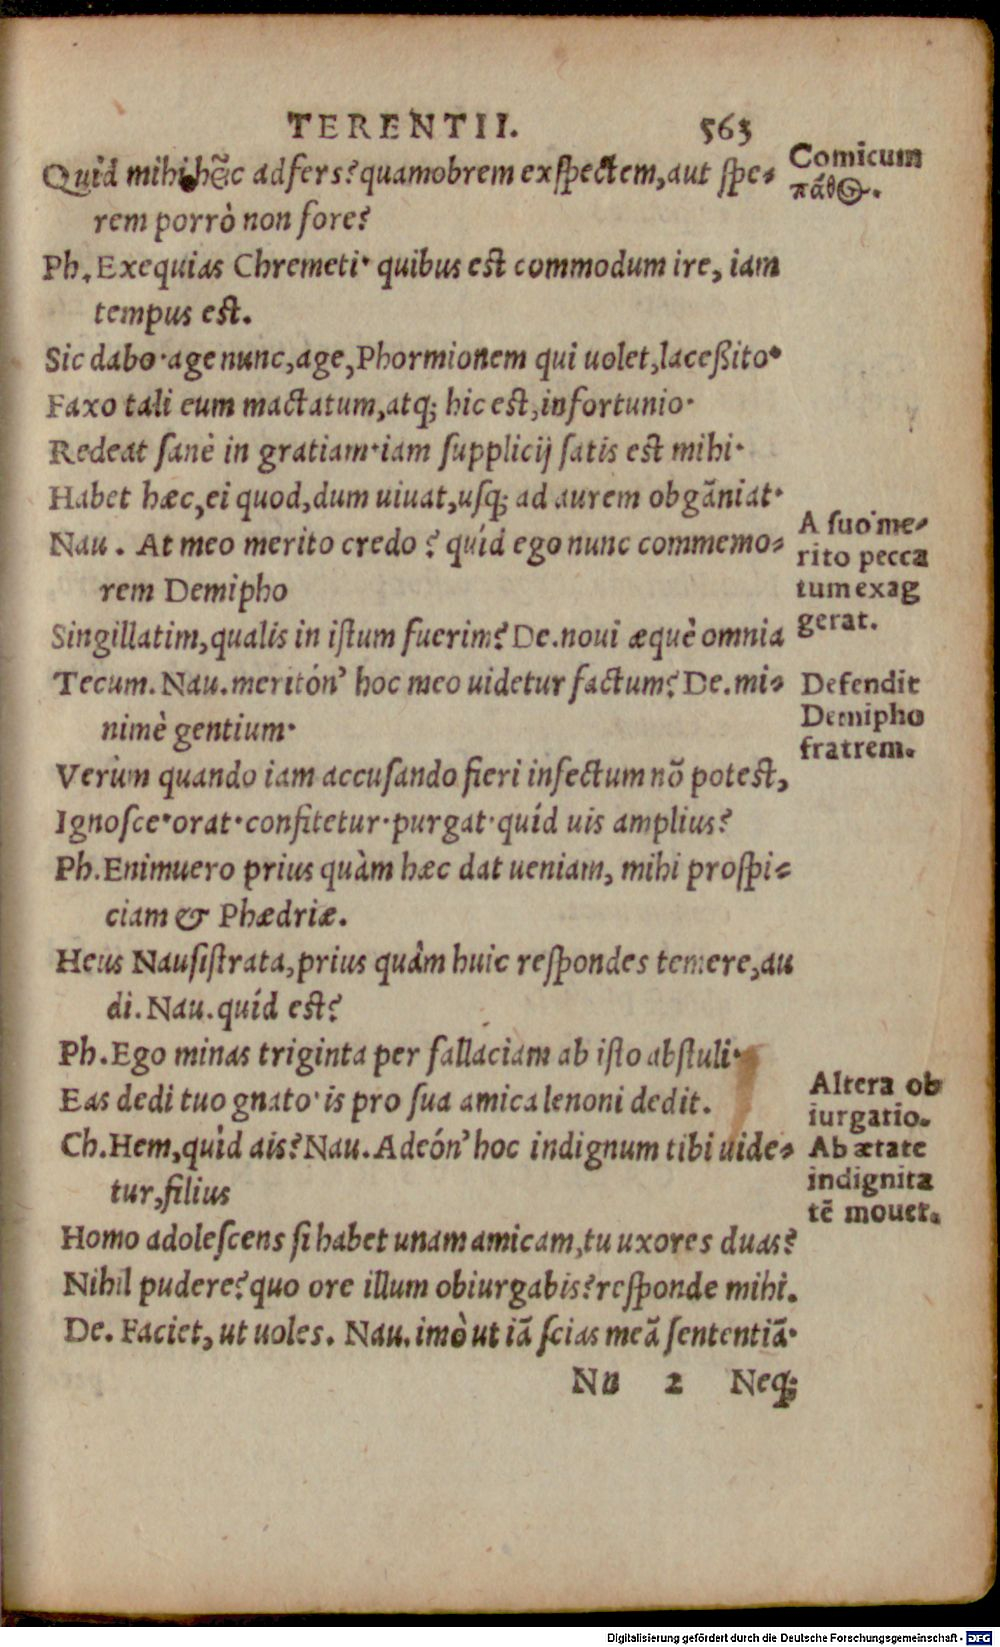 TERENTII. 563
Quid mihi hęc adfers? quamobrem exſpectem, aut ſpe-
rem porrò non fore?
Comicum
πάθος.
Ph. Exequias Chremeti· quibus eſt commodum ire, iam
tempus eſt.
Sic dabo· age nunc, age, Phormionem qui uolet, laceßito·
Faxo tali eum mactatum, atq; hic eſt, infortunio·
Redeat ſanè in gratiam· iam ſupplicij ſatis eſt mihi·
Habet hæc, ei quod, dum uiuat, uſq; ad aurem obgãniat·
Nau. At meo merito credo? quíd ego nunc commemo-
rem Demipho
A ſuo me-
rito pecca
tum exag
gerat.
Singillatim, qualis in iſtum fuerim? De. noui æquè omnia
Tecum. Nau. meritón' hoc meo uidetur factum? De. mi-
nimè gentium·
Defendit
Demipho
fratrem.
Verùm quando iam accuſando fieri infectum nõ poteſt,
Ignoſce· orat· confitetur· purgat· quíd uis amplius?
Ph. Enimuero prius quàm hæc dat ueniam, mihi proſpi-
ciam & Phædriæ.
Heus Nauſiſtrata, prius quàm huic reſpondes temere, au
di. Nau. quíd eſt?
Ph. Ego minas triginta per fallaciam ab iſto abſtuli·
Eas dedi tuo gnato· is pro ſua amica lenoni dedit.
Ch. Hem, quìd ais? Nau. Adeón' hoc indignum tibi uide-
tur, filius
Altera ob
iurgatio.
Ab ætate
indignita
tē mouet.
Homo adoleſcens ſi habet unam amicam, tu uxores duas?
Nihil pudere? quo ore illum obiurgabis? reſponde mihi.
De. Faciet, ut uoles. Nau. imò ut iã ſcias meã ſententiã·
Nn 2 Neq;
Digitalisierung gefördert durch die Deutsche Forschungsgemeinschaft - DFG